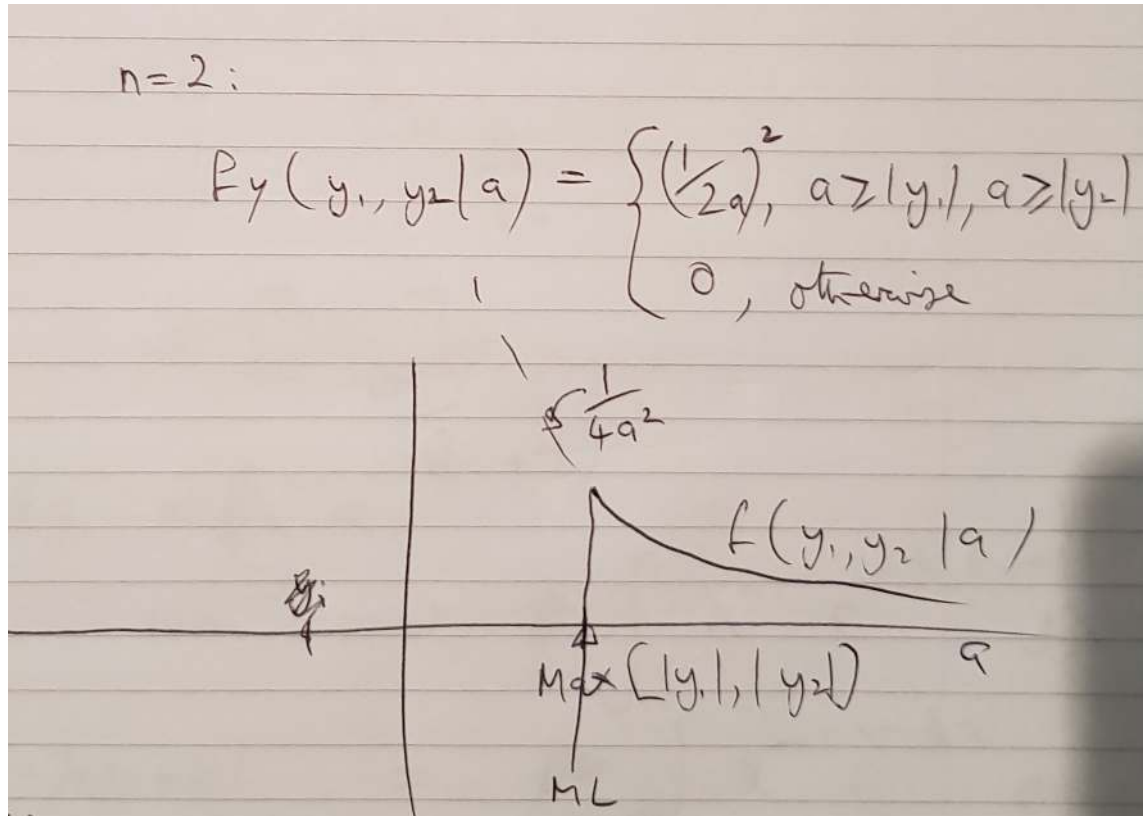 n=2:
fy(y₁, y₂|a) = { (1/2a)², a≥|y₁|, a≥|y₂|
0, otherwise
1/4a²
f(y₁, y₂|a)
a
Max[|y₁|, |y₂|]
ML